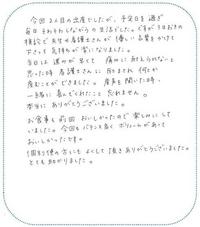 今回2人目の出産でしたが、予定日を過ぎ
毎日そわそわしながらの生活でした。ですが1日おきの
検診で先生や看護士さんが優しい言葉をかけて
下さって気持ちが楽になりました。
当日は週みが早くて 痛みに耐えられないと
思った時 看護士さんに 励まされ 何とか
産むことができました。産声を聞いた時、
一緒に喜んでくれたこと 忘れません。
本当にありがとうございました。
お食事も前回おいしかったので楽しみにして
いました。今回もバランス良くボリュームがあって
おいしかったです。
個別の方にもよくして頂きありがとうございました。
とても助かりました。